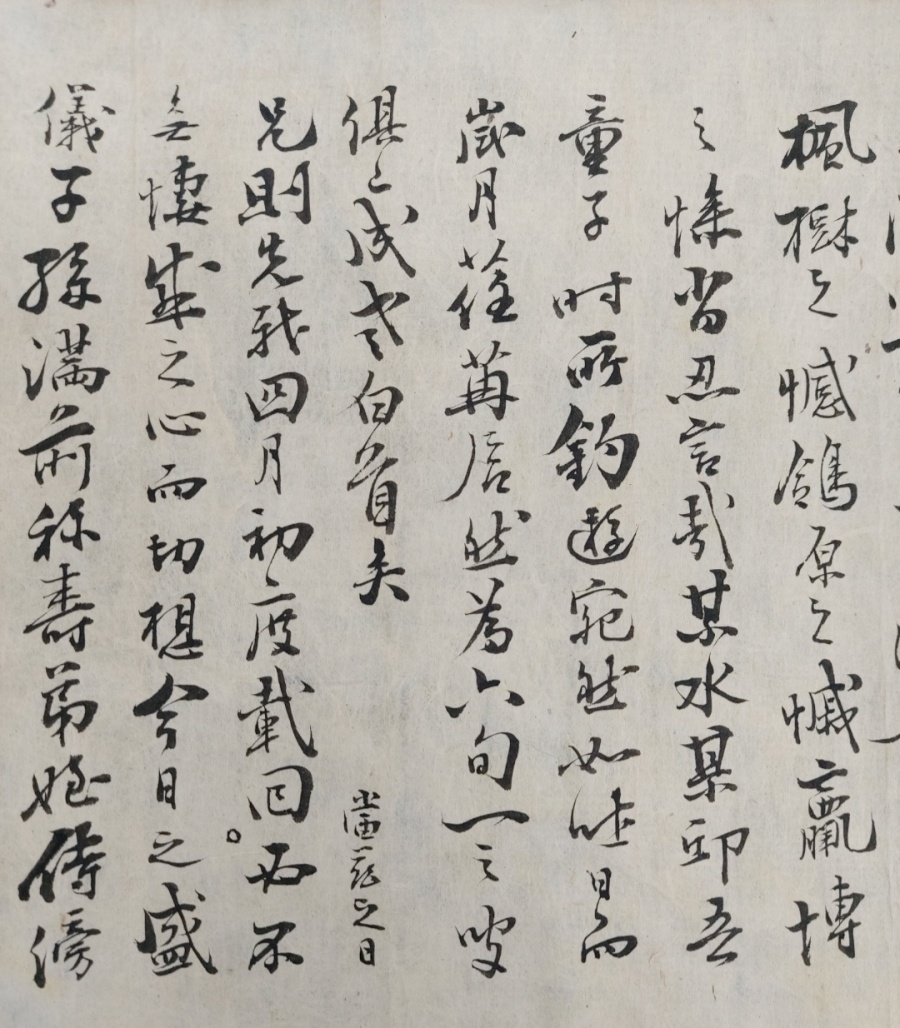 楓樹之憾鴒原之慽嬴博
之慘尙忍言哉某水某邱吾
童子時所釣遊宛然如昨日而
歲月荏苒居然爲六旬一之叟
俱已成老白首矣
當玆之日
兄則先我四月初度載回必不
無悽感之心而切想今日之盛
儀子孫滿前称壽弟姪侍傍